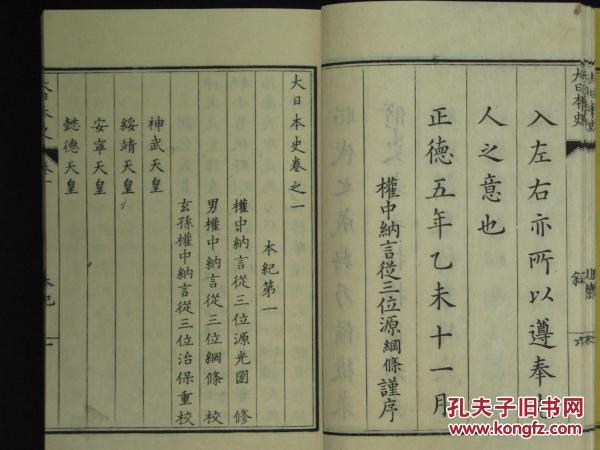 大日本史
叙
入左右亦所以遵奉先
人之意也
正德五年乙未十一月
權中納言從三位源綱條謹序
大日本史卷之一
本紀第一
權中納言從三位源光圀修
男權中納言從三位綱條校
玄孫權中納言從三位治保重校
神武天皇
綏靖天皇
安寧天皇
懿德天皇
孔夫子旧书网
www.kongfz.com